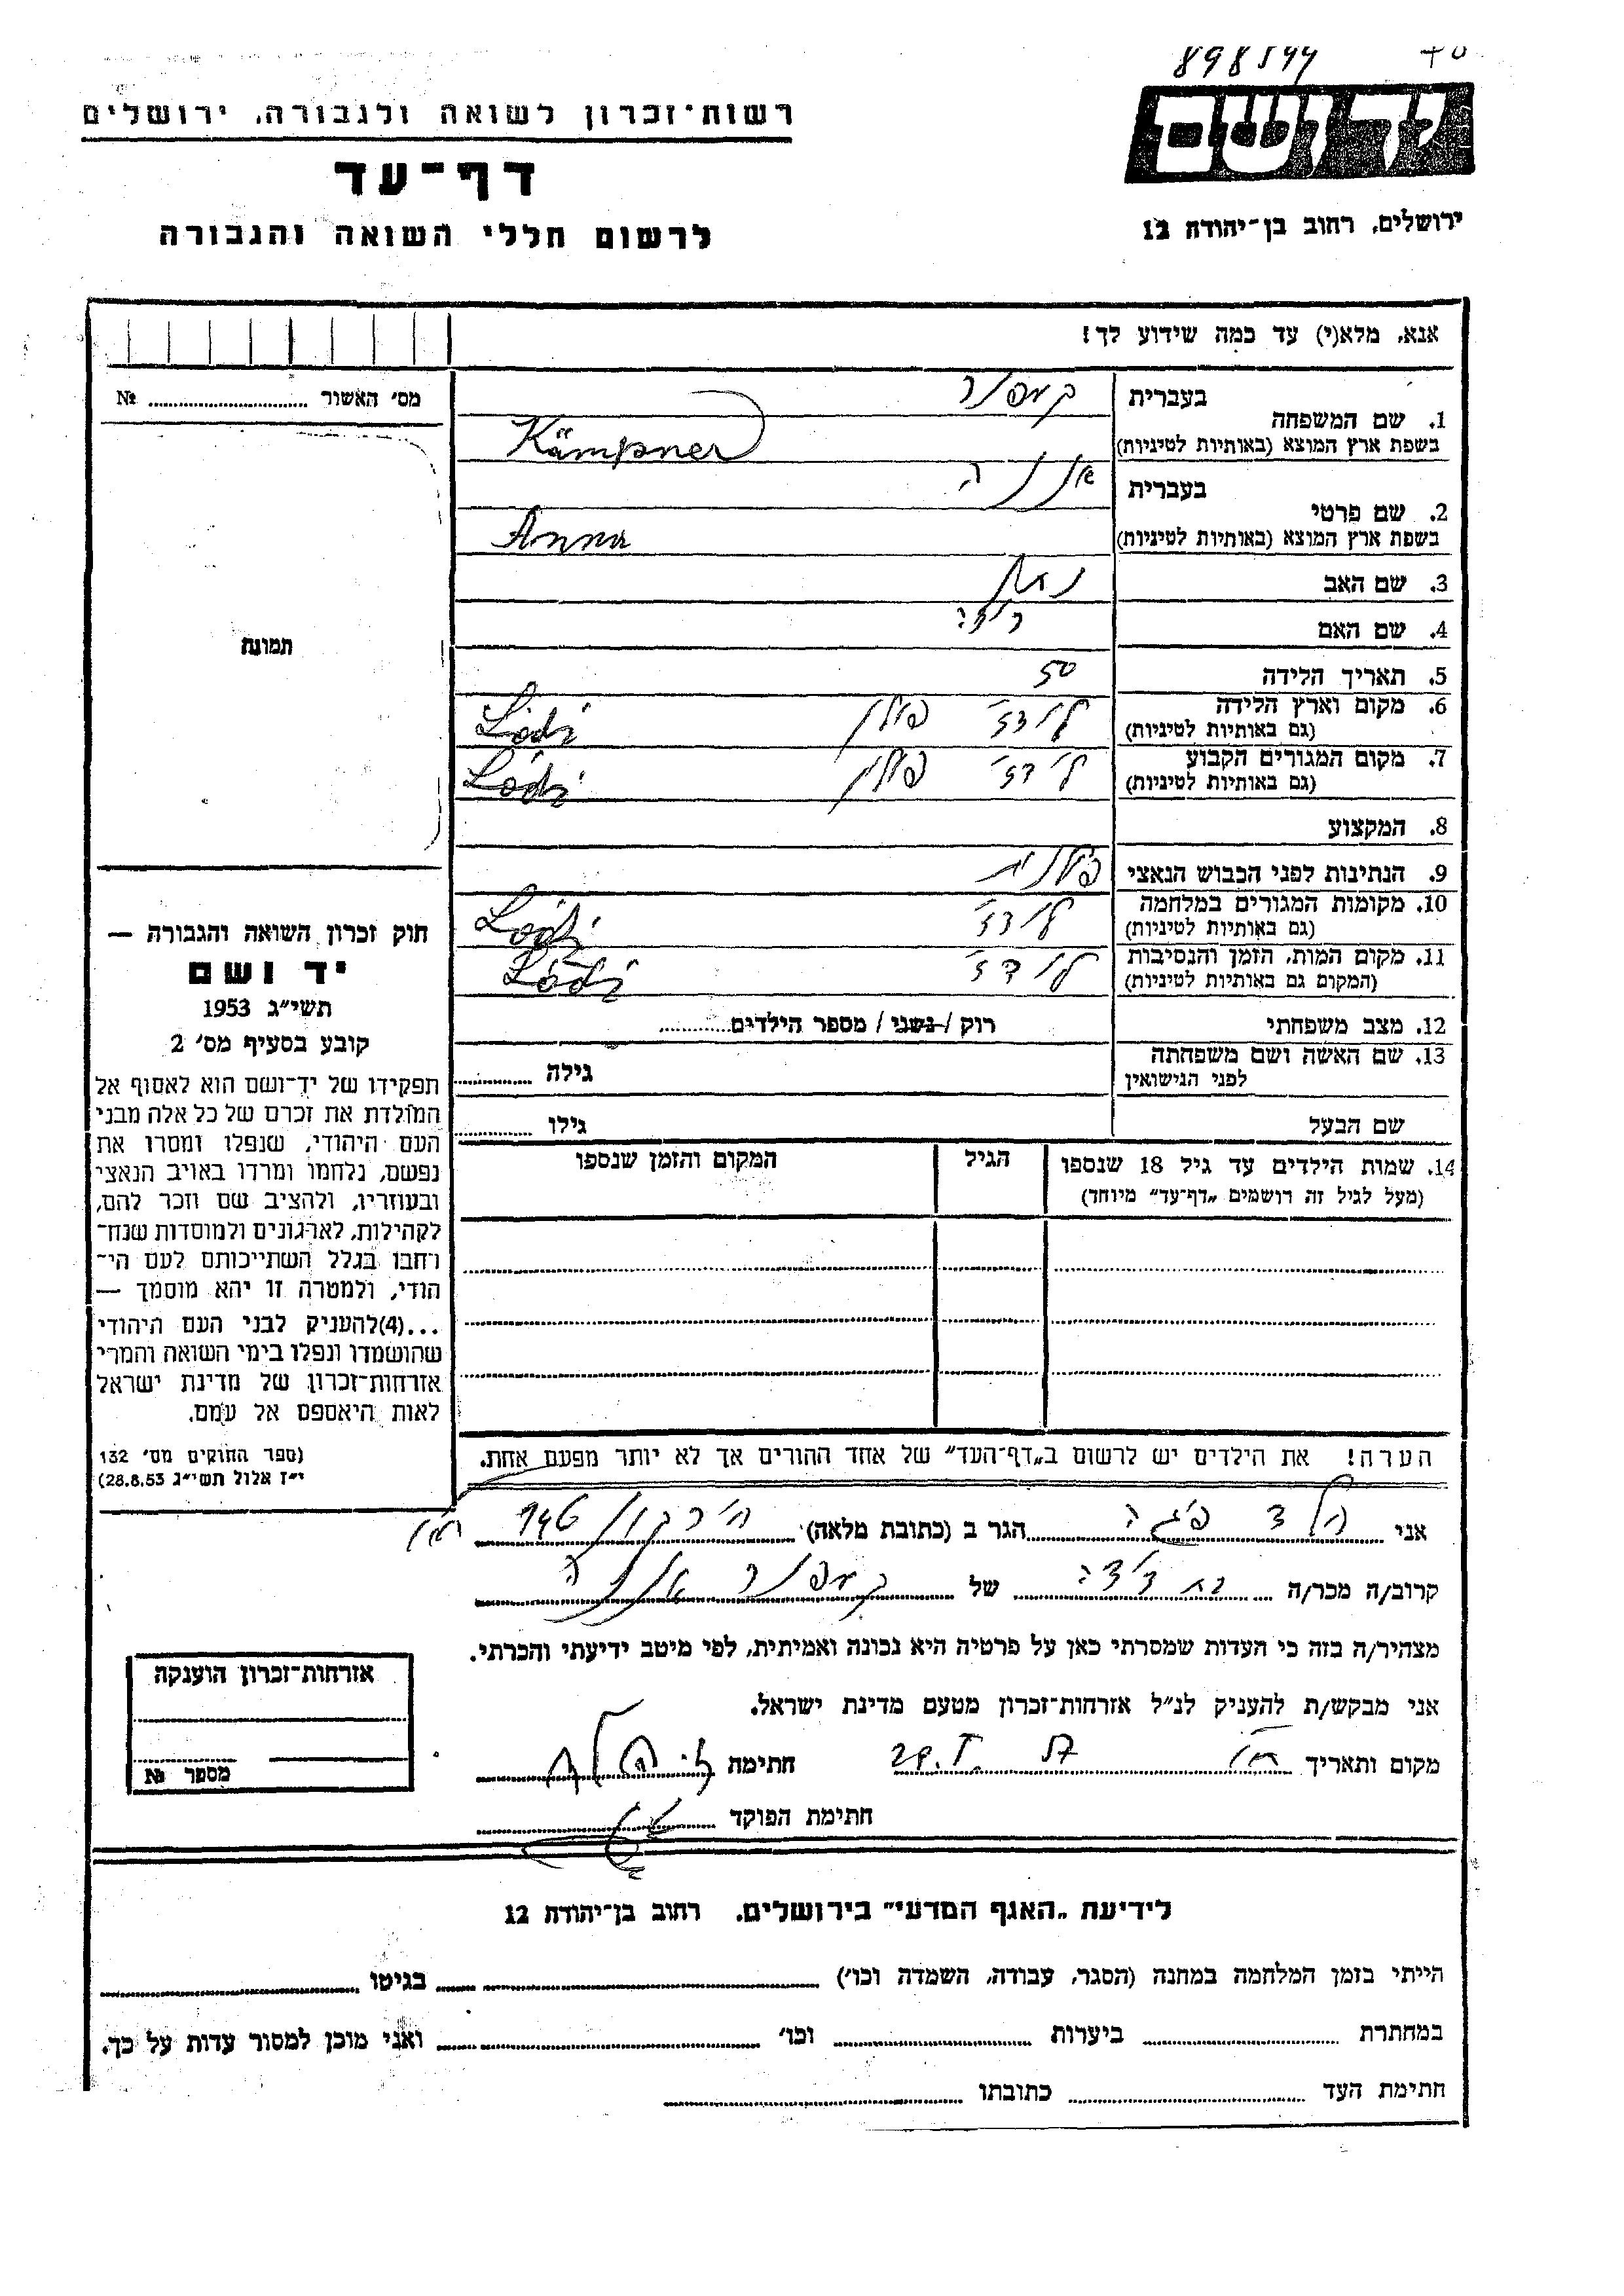 898544
יד ושם
ירושלים, רחוב בן-יהודה 12
רשות-זכרון לשואה ולגבורה, ירושלים
דף-עד
לרשום חללי השואה והגבורה
אנא, מלא(י) עד כמה שידוע לך!
1. שם המשפחה בעברית קמפנר
בשפת ארץ המוצא (באותיות לטיניות) Kämpner
2. שם פרטי בעברית אנה
בשפת ארץ המוצא (באותיות לטיניות) Anna
3. שם האב נתן
4. שם האם
5. תאריך הלידה 50
6. מקום וארץ הלידה (גם באותיות לטיניות) לודז' פולין Lódź
7. מקום המגורים הקבוע (גם באותיות לטיניות) לודז' פולין Lódź
8. המקצוע
9. הנתינות לפני הכבוש הנאצי פולנית
10. מקומות המגורים במלחמה (גם באותיות לטיניות) לודז' Lódź
11. מקום המות, הזמן והנסיבות (המקום גם באותיות לטיניות) לודז' Lódź
12. מצב משפחתי רוק / נשוי / מספר הילדים
13. שם האשה ושם משפחתה לפני הנישואין גילה
שם הבעל גילו
14. שמות הילדים עד גיל 18 שנספו (מעל לגיל זה רושמים „דף-עד" מיוחד) הגיל המקום והזמן שנספו
הערה! את הילדים יש לרשום ב„דף-העד" של אחד ההורים אך לא יותר מפעם אחת.
מס' האשור №
תמונה
חוק זכרון השואה והגבורה —
יד ושם
תשי"ג 1953
קובע בסעיף מס' 2
תפקידו של יד-ושם הוא לאסוף אל
המולדת את זכרם של כל אלה מבני
העם היהודי, שנפלו ומסרו את
נפשם, נלחמו ומרדו באויב הנאצי
ובעוזריו, ולהציב שם וזכר להם,
לקהילות, לארגונים ולמוסדות שנח-
רחבו בגלל השתייכותם לעם הי-
הודי, ולמטרה זו יהא מוסמך —
...(4)להעניק לבני העם היהודי
שהושמדו ונפלו בימי השואה והמרי
אזרחות-זכרון של מדינת ישראל
לאות היאספם אל עמם.
(ספר החוקים מס' 132
י"ז אלול תשי"ג 28.8.53)
אני פגה הגר ב (כתובת מלאה) הירקון
קרוב/ה מכר/ה בת דודה של קמפנר אנה
מצהיר/ה בזה כי העדות שמסרתי כאן על פרטיה היא נכונה ואמיתית, לפי מיטב ידיעתי והכרתי.
אני מבקש/ת להעניק לנ"ל אזרחות-זכרון מטעם מדינת ישראל.
מקום ותאריך 57 חתימה
חתימת הפוקד
אזרחות-זכרון הוענקה
מספר №
לידיעת „האגף המדעי" בירושלים, רחוב בן-יהודה 12
הייתי בזמן המלחמה במחנה (הסגר, עבודה, השמדה וכו') בגיטו
במחתרת ביערות וכו' ואני מוכן למסור עדות על כך.
חתימת העד כתובתו